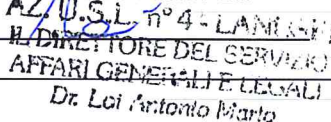 AZ. U.S.L. n° 4 - LANUSEI
IL DIRETTORE DEL SERVIZIO
AFFARI GENERALI E LEGALI
Dr. Loi Antonio Mario